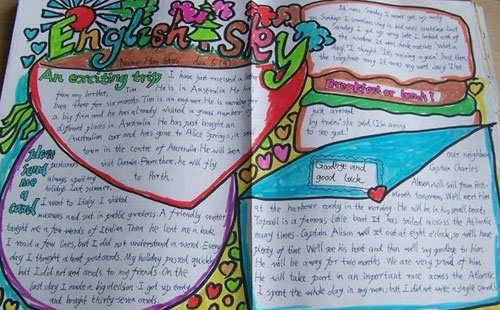 English sky
Name: Han Shuo class 6 (4)
An exciting trip
I have just received a letter
from my brother, Tim. He is in Australia. He has
been there for six months. Tim is an engineer. He is working for
a big firm and he has already visited a great number of
different places in Australia. He has just bought an
Australian car and has gone to Alice Springs, a small
town in the centre of Australia. He will soon
visit Darwin. From there, he will fly
to Perth.
please
send
me
a card
Postcards
always spoil my
holidays. Last summer,
I went to Italy. I visited
museums and sat in public gardens. A friendly waiter
taught me a few words of Italian. Then he lent me a book.
I read a few lines, but I did not understand a word. Every
day I thought about postcards. My holiday passed quickly,
but I did not send cards to my friends. On the
last day I made a big decision. I got up early
and bought thirty-seven cards.
It was Sunday. I never get up early
on Sundays. I sometimes stay in bed until lunchtime. Last
Sunday I got up very late. I looked out of
the window. It was dark outside. 'What a
day!' I thought. 'It's raining again.' Just then,
the telephone rang. It was my aunt Lucy. 'I've
Breakfast or lunch!
just arrived
by train,' she said. 'I'm coming
to see you.'
Goodbye and
good luck
Our neighbour,
Captain Charles
Alison, will sail from
tomorrow. We'll meet him
at the harbour early in the morning. He will be in his small boat,
Topsail. Topsail is a famous little boat. It has sailed across the Atlantic
many times. Captain Alison will set out at eight o'clock, so we'll have
plenty of time. We'll see his boat and then we'll say goodbye to him.
He will be away for two months. We are very proud of him.
He will take part in an important race across the Atlantic.
I spent the whole day in my room, but I did not write a single card!